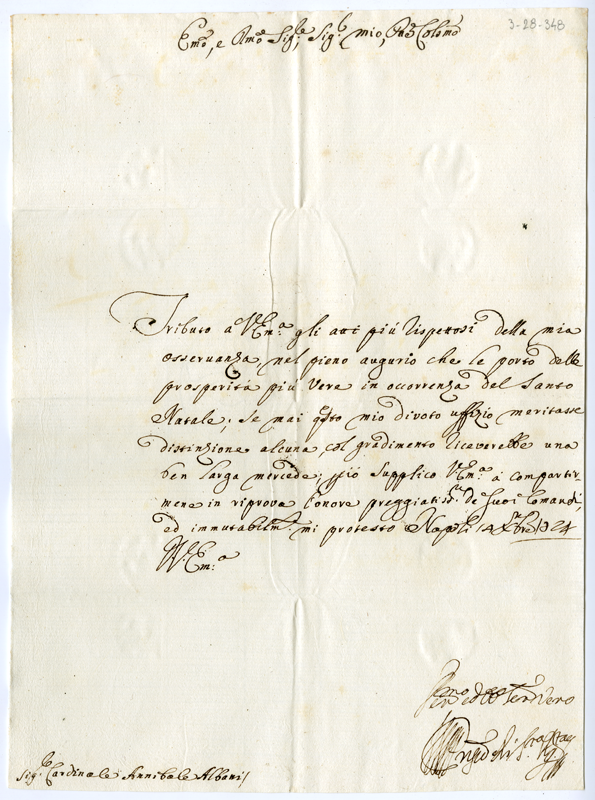 3-28-348
Em̃o, e Rm̃o Sig.re Sig.r mio, Pñe Colmõ
Tributo a V. Em.a gli atti più rispettosi della mia
osseruanza, nel pieno augurio che le porto delle
prosperità più vere in occorrenza del Santo
Natale. Se mai qsto mio divoto uffizio meritasse
distinzione alcuna, col gradimento riceverebbe una
ben larga mercede; Supplico V. Em.a à compartir-
mene in riprova l'onore preggiatis.mo de Suoi Comandi,
ed immutabilm.te mi protesto Napoli 14 Xbre 1724
V. Em.a
Servero
Sig.re Cardinale Annibale Albani